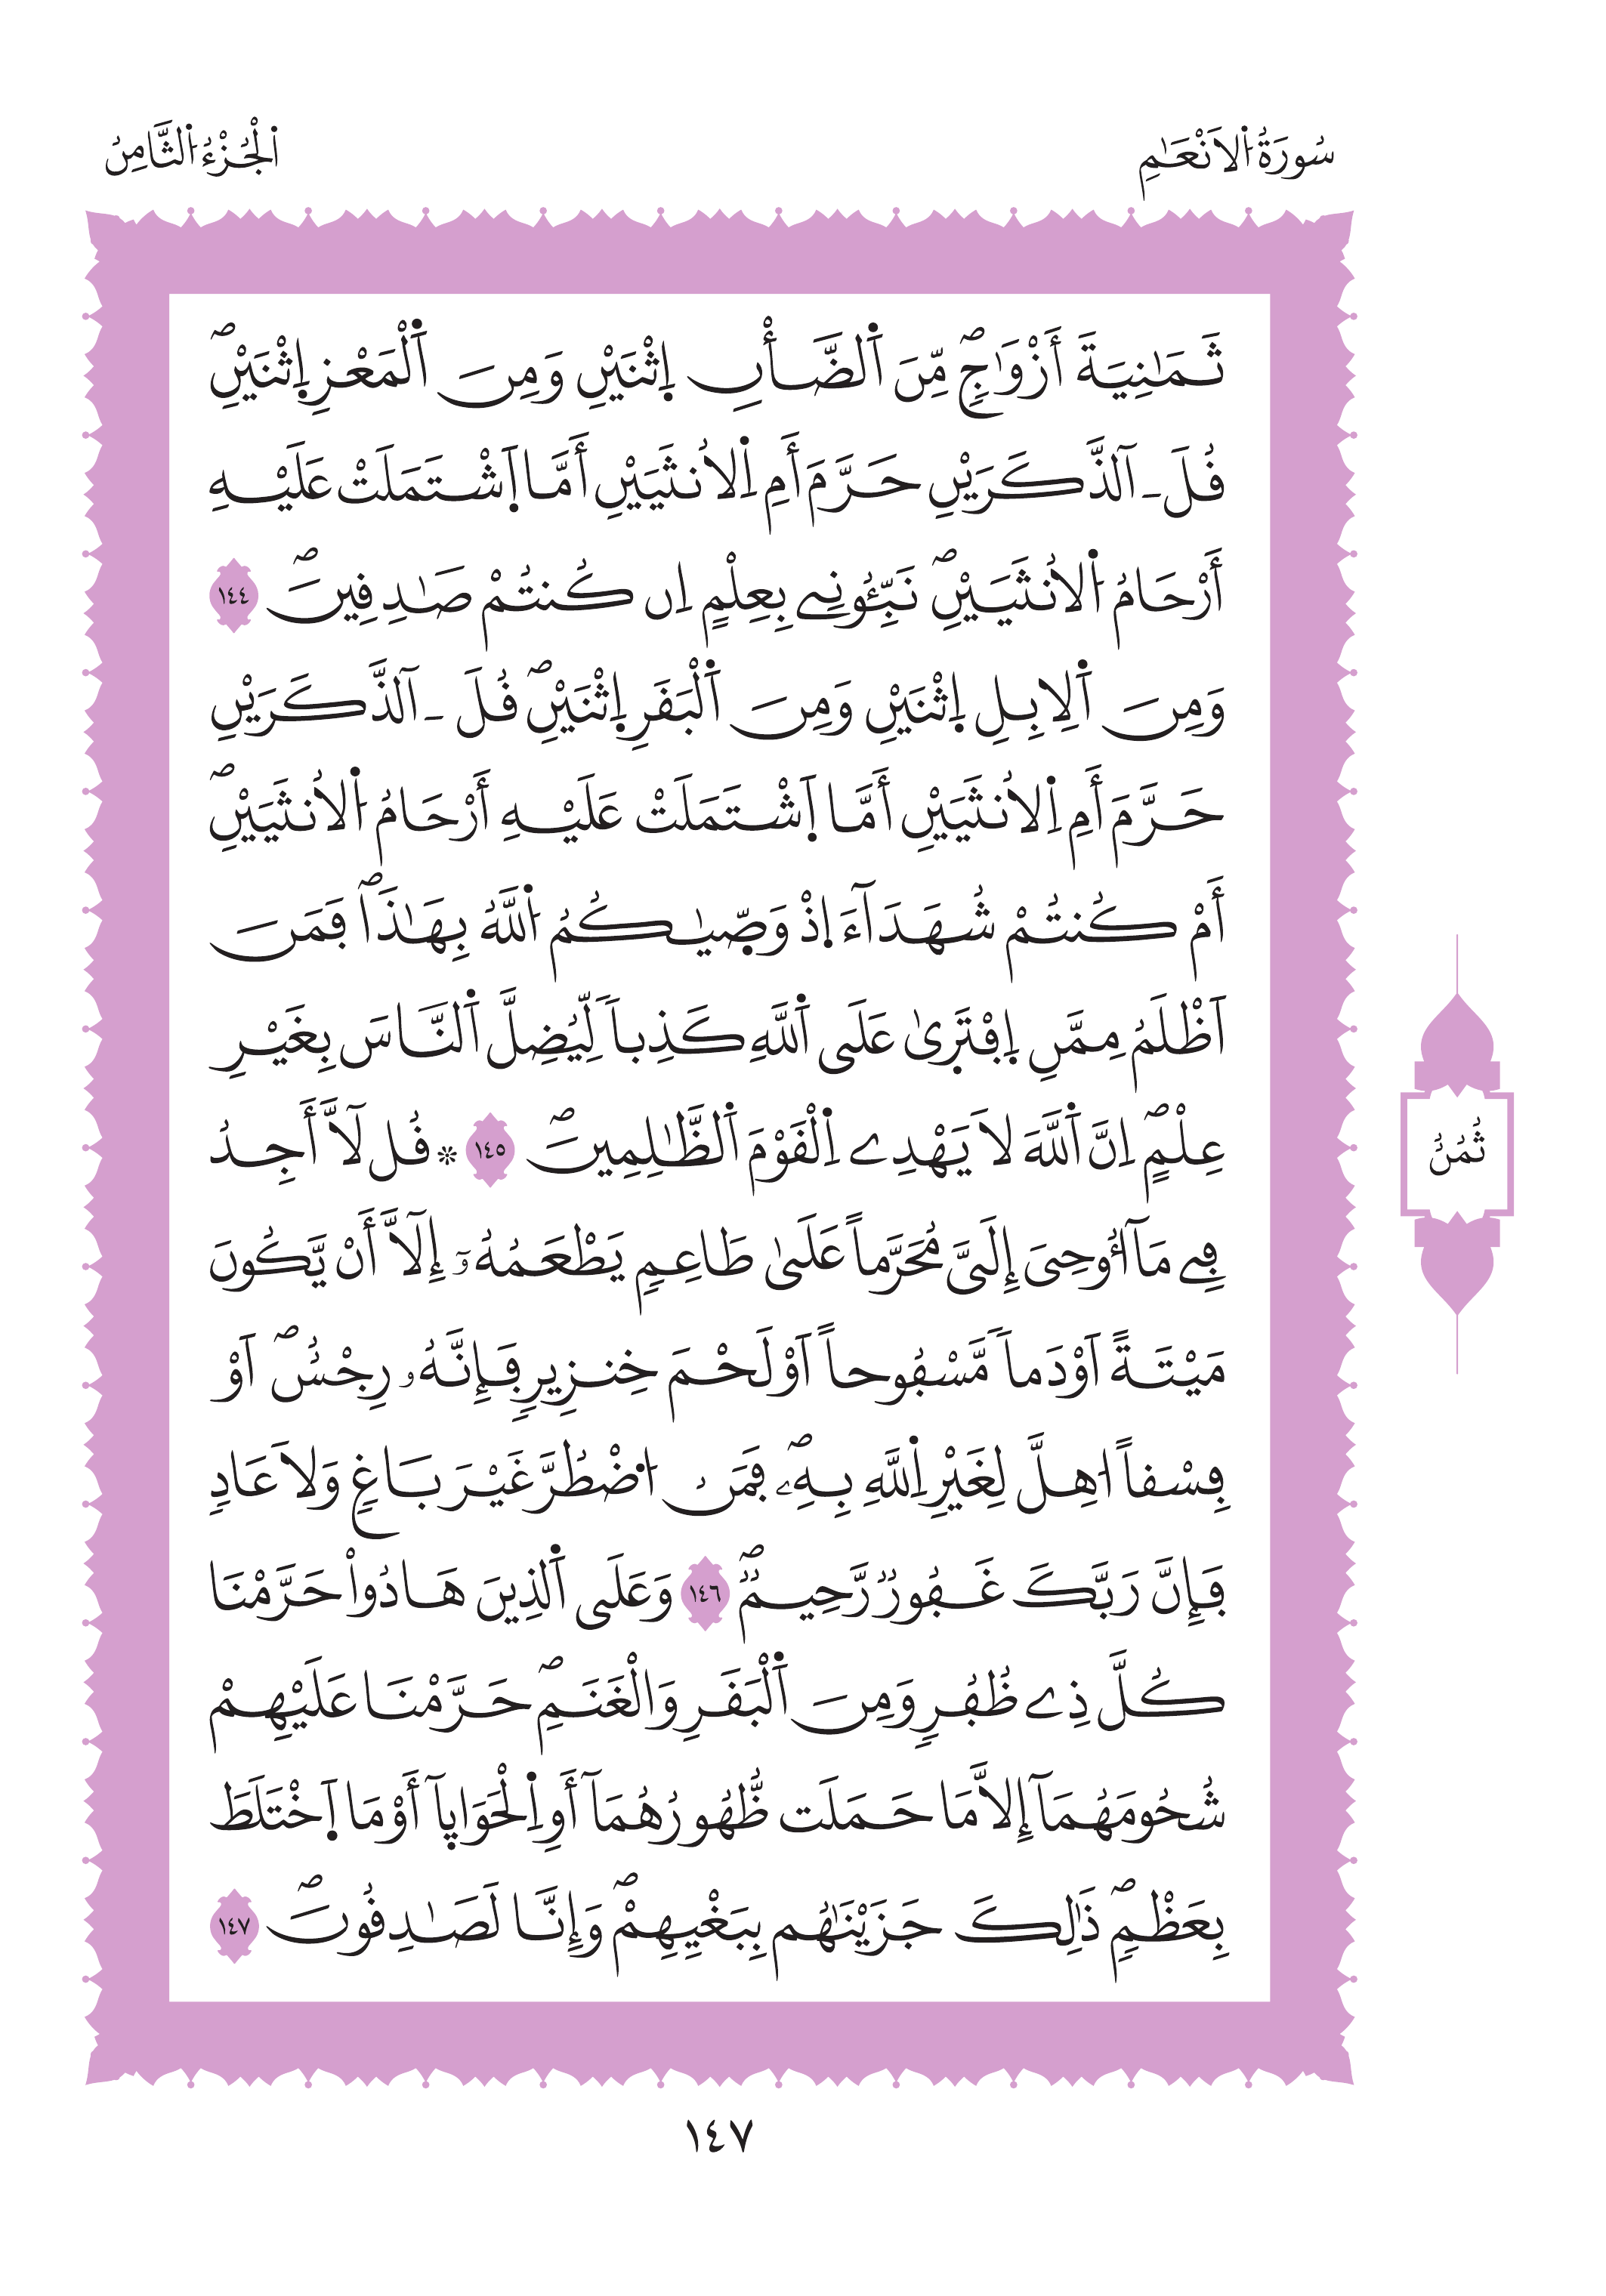 سُورَةُ اُ۬لَانْعَٰمِ
اَ۬لْجُزْءُ اُ۬لثَّامِنُ
ثَمَٰنِيَةَ أَزْوَٰجٖۖ مِّنَ اَ۬لضَّأْنِ اِ۪ثْنَيْنِ وَمِنَ اَ۬لْمَعْزِ اِ۪ثْنَيْنِۖ
قُلَ ـ آلذَّكَرَيْنِ حَرَّمَ أَمِ اِ۬لُانثَيَيْنِ أَمَّا اَ۪شْتَمَلَتْ عَلَيْهِ
أَرْحَامُ اُ۬لُانثَيَيْنِۖ نَبِّـُٔونِے بِعِلْمٍ اِن كُنتُمْ صَٰدِقِينَۖ ١٤٤
وَمِنَ اَ۬لِابِلِ اِ۪ثْنَيْنِ وَمِنَ اَ۬لْبَقَرِ اِ۪ثْنَيْنِۖ قُلَ ـ آلذَّكَرَيْنِ
حَرَّمَ أَمِ اِ۬لُانثَيَيْنِ أَمَّا اَ۪شْتَمَلَتْ عَلَيْهِ أَرْحَامُ اُ۬لُانثَيَيْنِۖ
أَمْ كُنتُمْ شُهَدَآءَ اِ۪ذْ وَصّ۪يٰكُمُ اُ۬للَّهُ بِهَٰذَاۖ فَمَنَ
اَظْلَمُ مِمَّنِ اِ۪فْتَر۪يٰ عَلَى اَ۬للَّهِ كَذِباٗ لِّيُضِلَّ اَ۬لنَّاسَ بِغَيْرِ
عِلْمٍۖ اِنَّ اَ۬للَّهَ لَا يَهْدِے اِ۬لْقَوْمَ اَ۬لظَّٰلِمِينَۖ ١٤٥ ۞ قُل لَّآ أَجِدُ
فِے مَآ أُوحِيَ إِلَيَّ مُحَرَّماً عَلَىٰ طَاعِمٖ يَطْعَمُهُۥٓ إِلَّآ أَنْ يَّكُونَ
مَيْتَةً اَوْ دَماٗ مَّسْفُوحاً اَوْ لَحْمَ خِنزِيرٖ فَإِنَّهُۥ رِجْسٌۖ اَوْ
فِسْقاً اُهِلَّ لِغَيْرِ اِ۬للَّهِ بِهِۦۖ فَمَنُ اُ۟ضْطُرَّ غَيْرَ بَاغٖ وَلَا عَادٖ
فَإِنَّ رَبَّكَ غَفُورٞ رَّحِيمٞۖ ١٤٦ وَعَلَى اَ۬لذِينَ هَادُواْ حَرَّمْنَا
كُلَّ ذِے ظُفُرٖ وَمِنَ اَ۬لْبَقَرِ وَالْغَنَمِۖ حَرَّمْنَا عَلَيْهِمْ
شُحُومَهُمَآ إِلَّا مَا حَمَلَت ظُّهُورُهُمَآ أَوِ اِ۬لْحَوَاي۪آ أَوْ مَا اَ۪خْتَلَطَ
بِعَظْمٖۖ ذَٰلِكَ جَزَيْنَٰهُم بِبَغْيِهِمْۖ وَإِنَّا لَصَٰدِقُونَۖ ١٤٧
ثُمُنُ
١٤٧